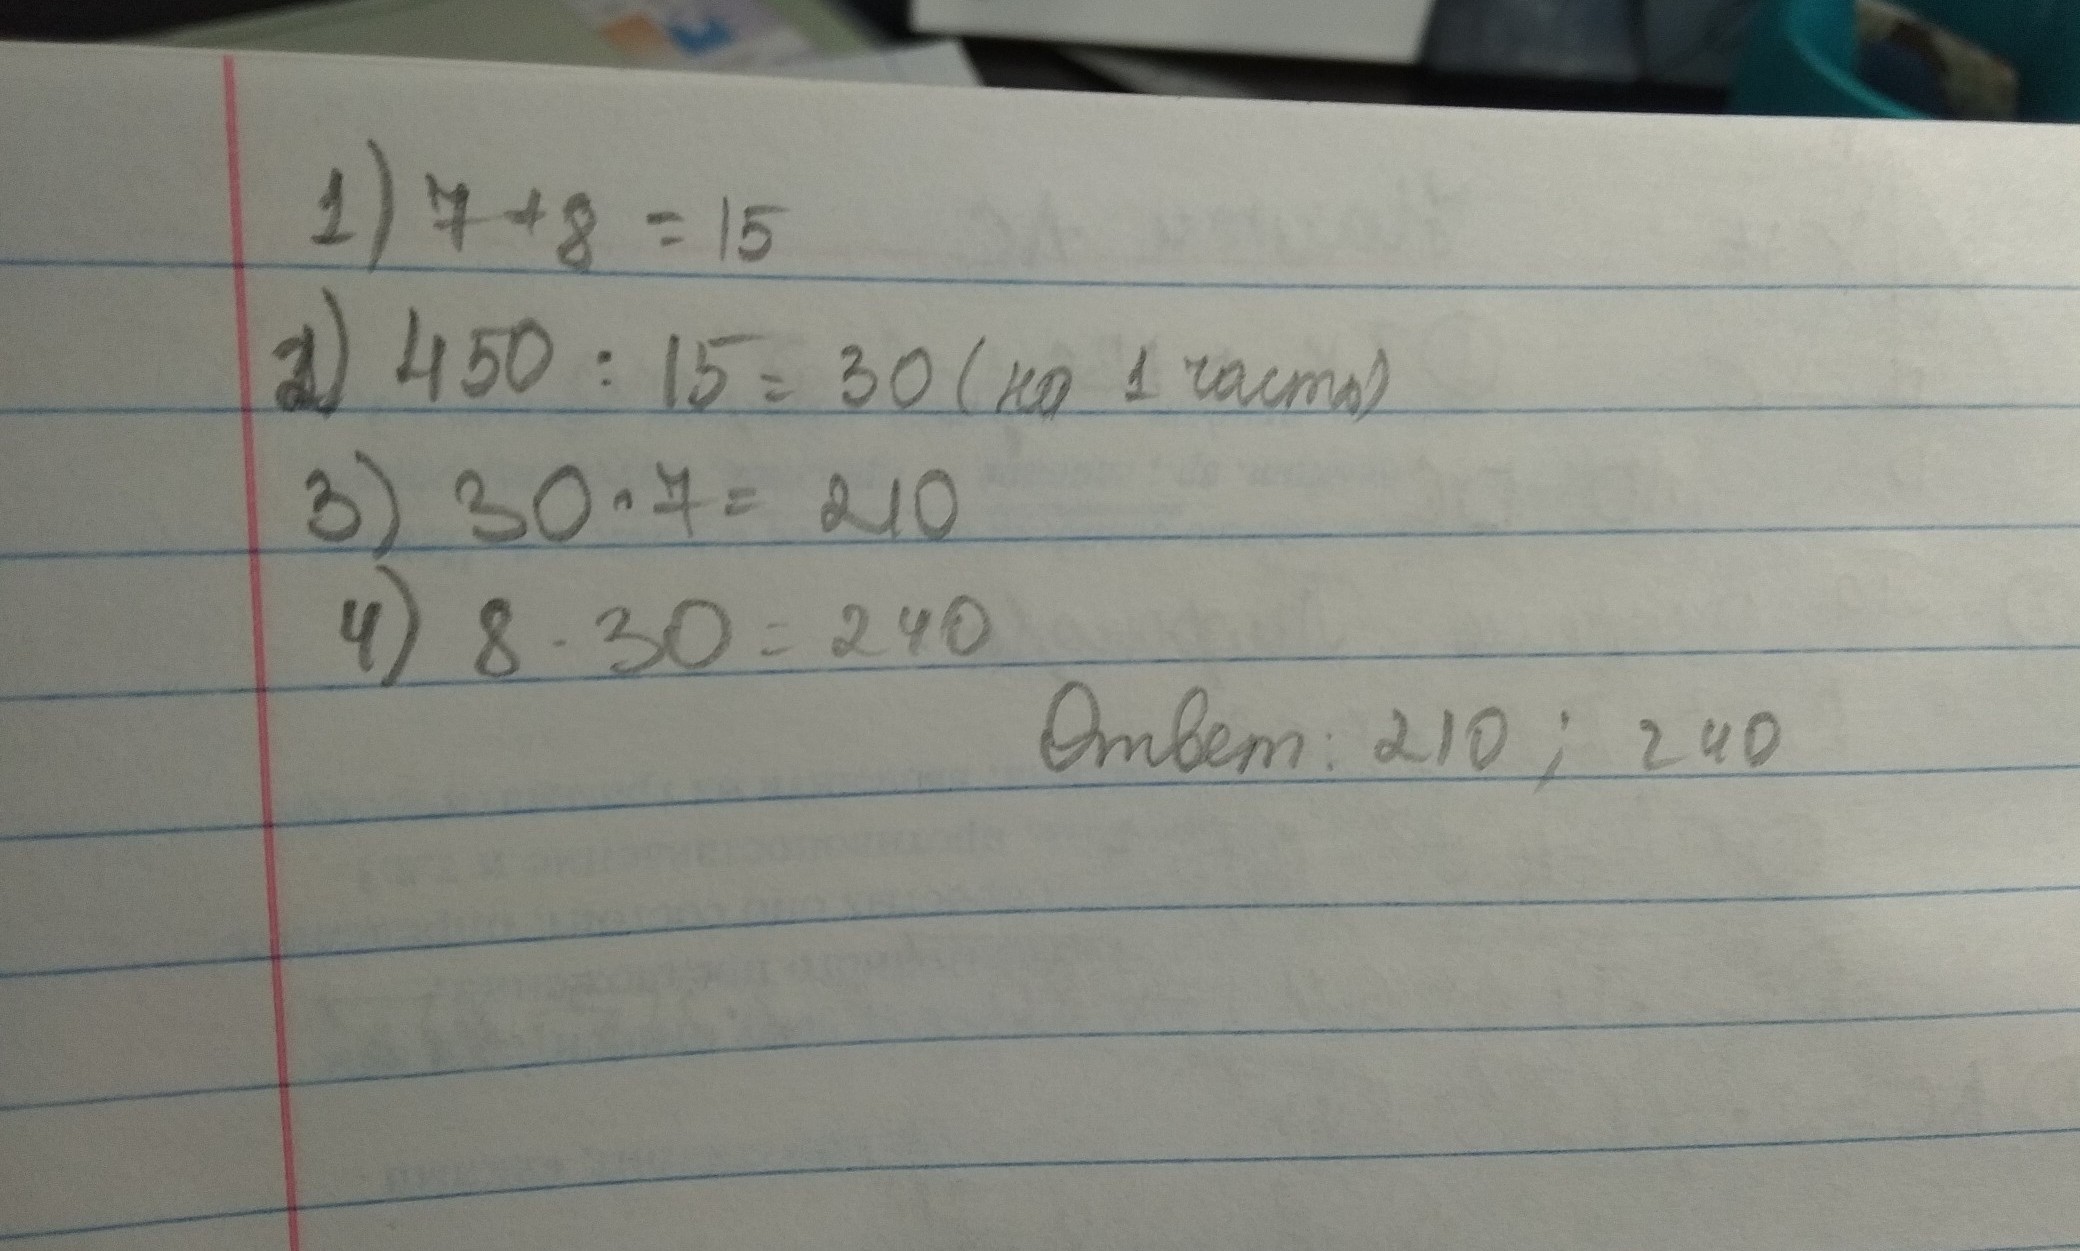 1) 7+8 = 15
2) 450 : 15 = 30 (на 1 часть)
3) 30 · 7 = 210
4) 8 · 30 = 240
Ответ: 210 ; 240